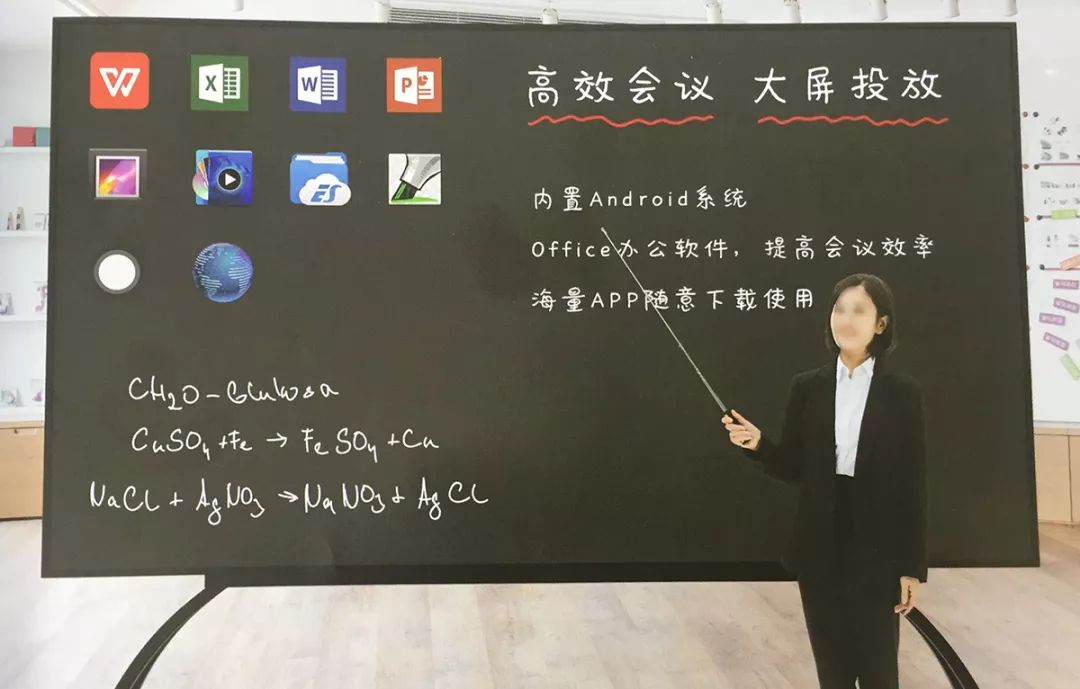 高效会议 大屏投放
内置Android系统
Office办公软件，提高会议效率
海量APP随意下载使用
W
X
W
P
ES
CH₂O - Glukosa
CuSO₄ + Fe → FeSO₄ + Cu
NaCl + AgNO₃ → NaNO₃ + AgCl